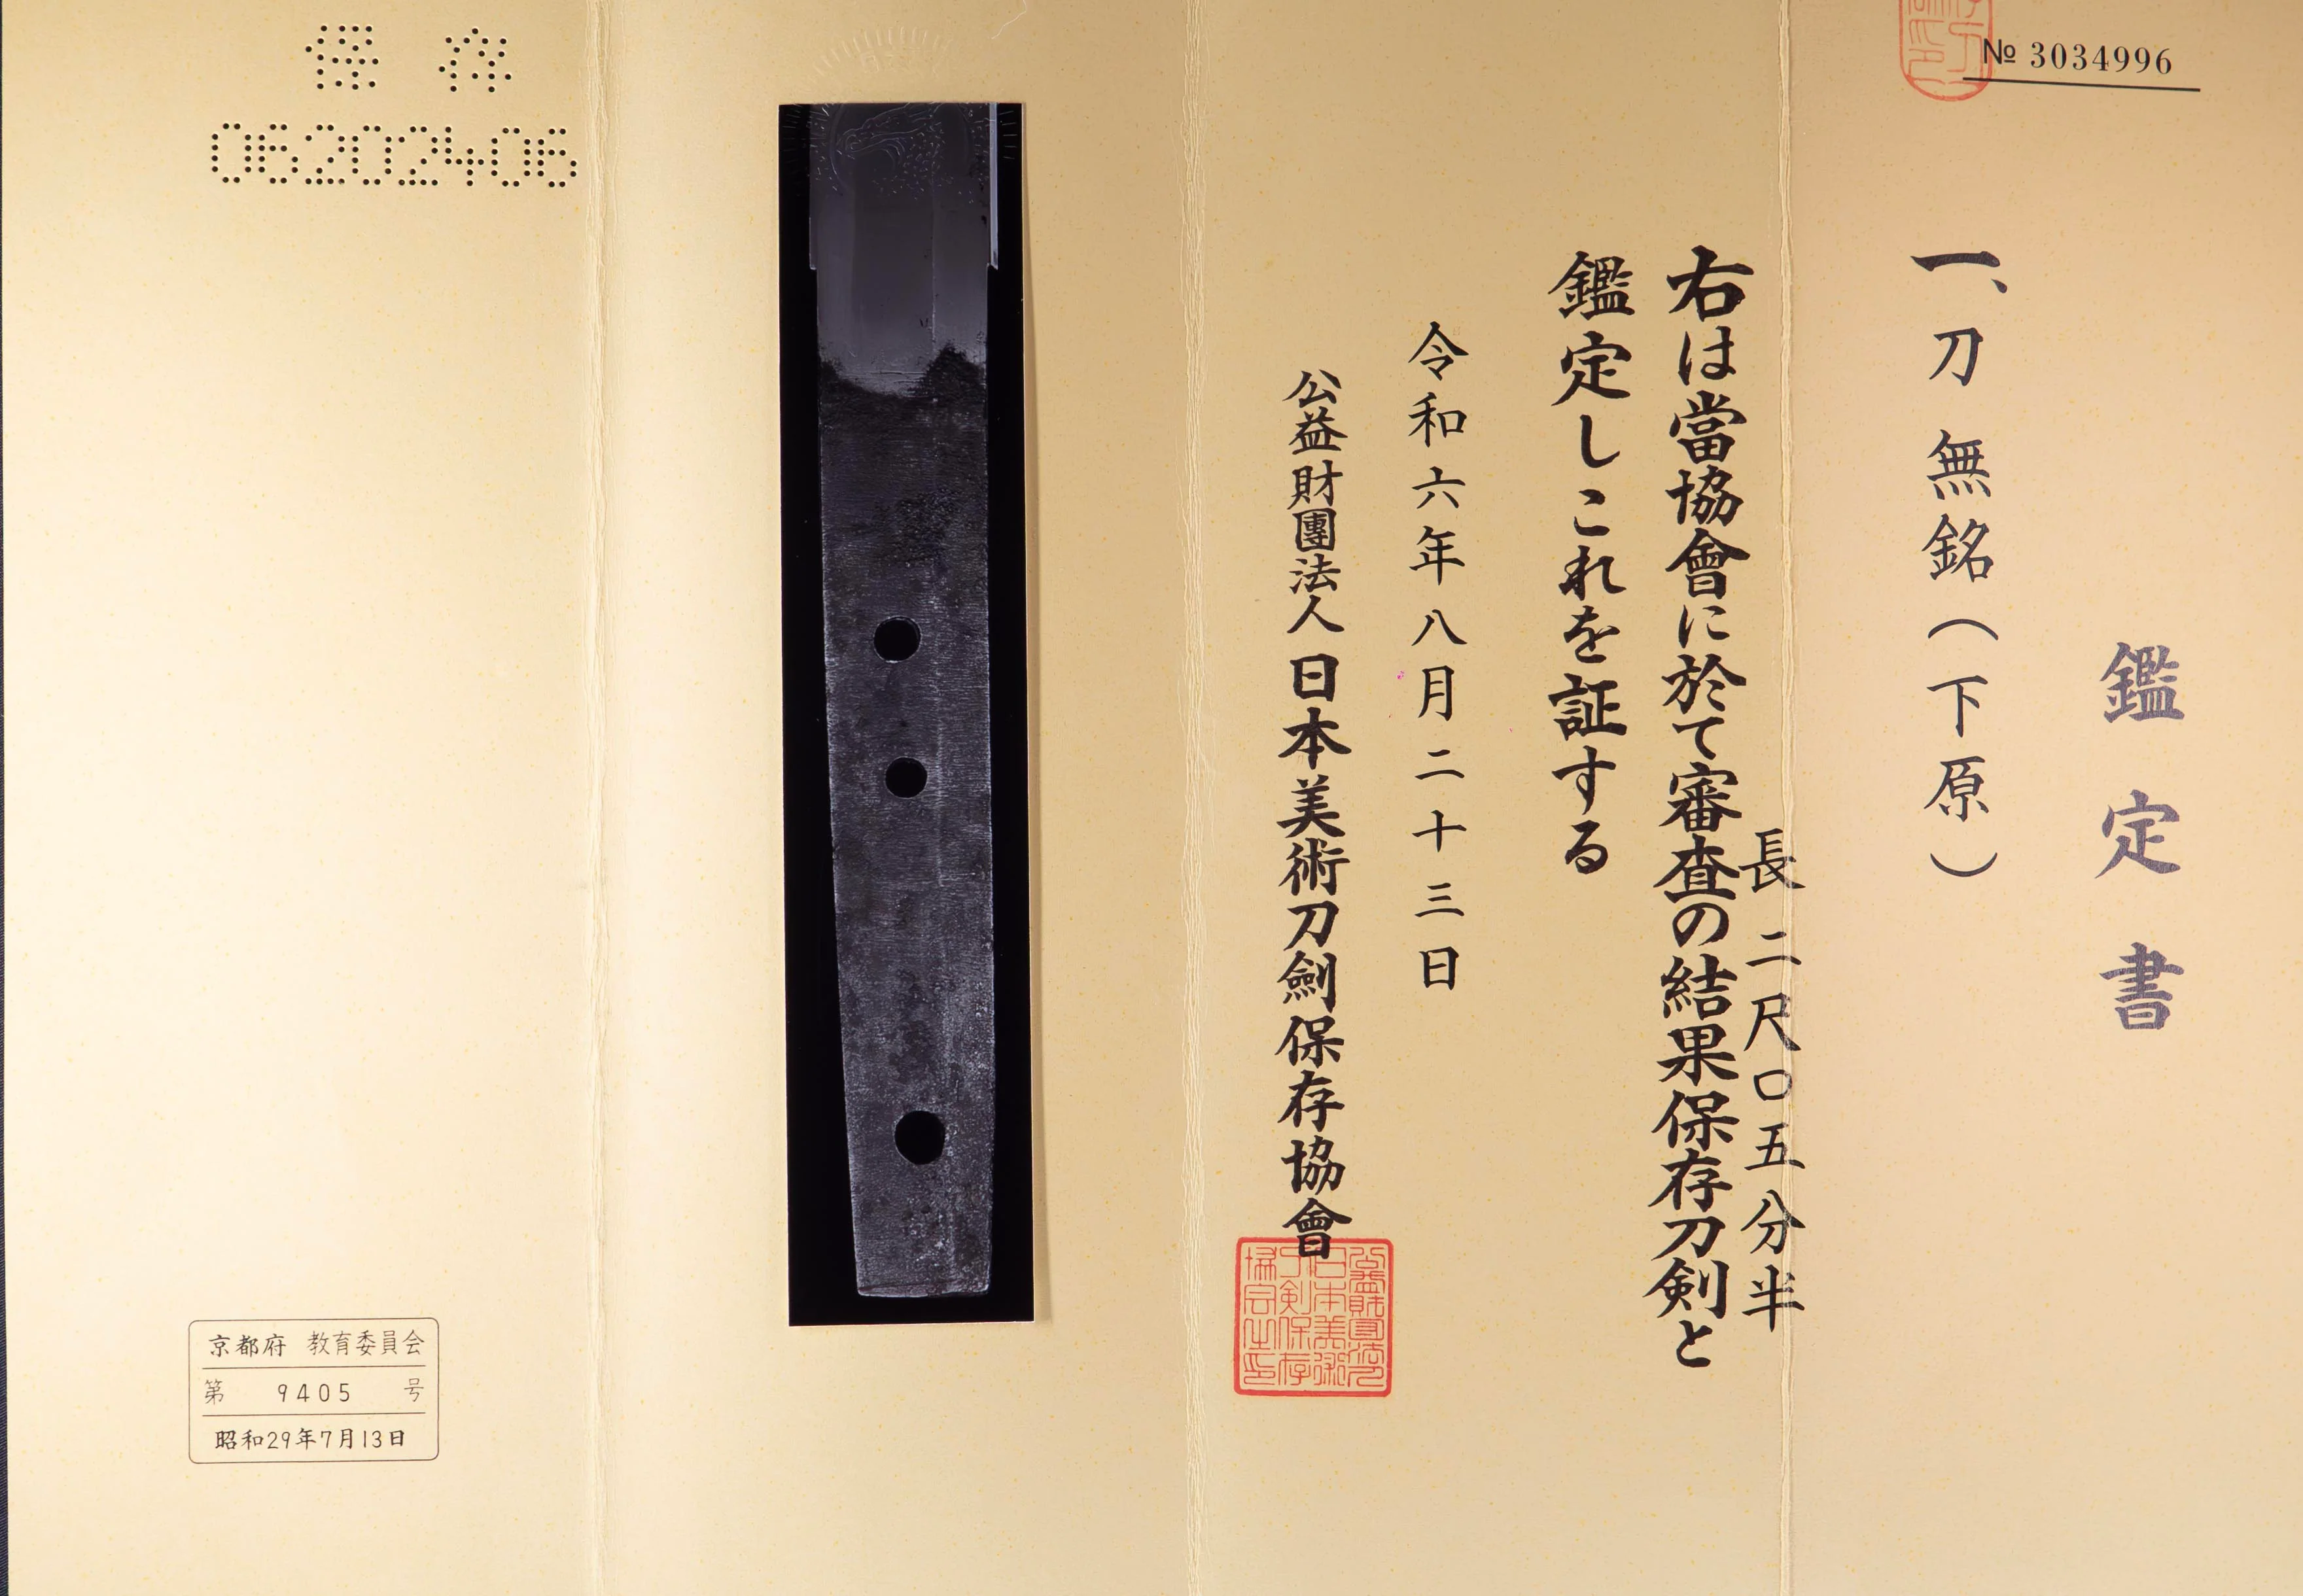 № 3034996
鑑定書
一、刀 無銘(下原)
長 二尺〇五分半
右は當協會に於て審査の結果保存刀剣と
鑑定しこれを証する
令和六年八月二十三日
公益財團法人日本美術刀劍保存協會
保存
06202406
京都府 教育委員会
第 9405 号
昭和29年7月13日